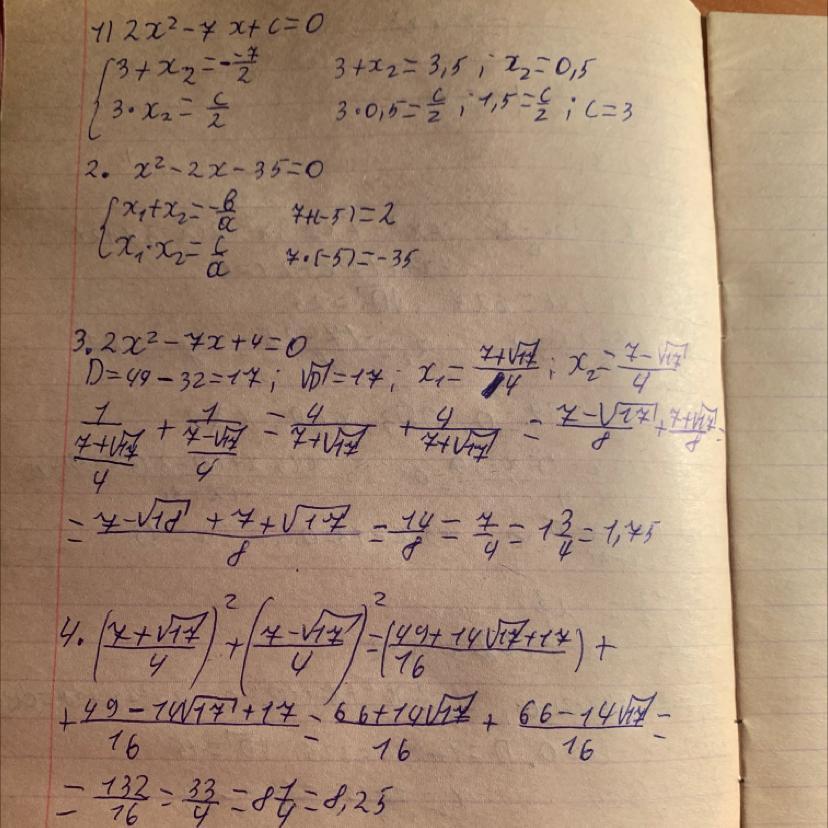 1) 2x² - 7x + c = 0
{ 3 + x₂ = - -7/2     3 + x₂ = 3,5 ; x₂ = 0,5
{ 3 · x₂ = c/2     3 · 0,5 = c/2 ; 1,5 = c/2 ; c = 3
2. x² - 2x - 35 = 0
{ x₁ + x₂ = -в/a     7 + (-5) = 2
{ x₁ · x₂ = c/a     7 · (-5) = -35
3. 2x² - 7x + 4 = 0
D = 49 - 32 = 17 ; √D = 17 ; x₁ = (7+√17)/4 ; x₂ = (7-√17)/4
1/((7+√17)/4) + 1/((7-√17)/4) = 4/(7+√17) + 4/(7+√17) = (7-√17)/8 + (7+√17)/8 =
= (7-√18 + 7 + √17)/8 = 14/8 = 7/4 = 1 3/4 = 1,75
4. ((7+√17)/4)² + ((7-√17)/4)² = ((49 + 14√17 + 17)/16) +
+ (49 - 14√17 + 17)/16 = (66 + 14√17)/16 + (66 - 14√17)/16 =
= 132/16 = 33/4 = 8 1/4 = 8,25